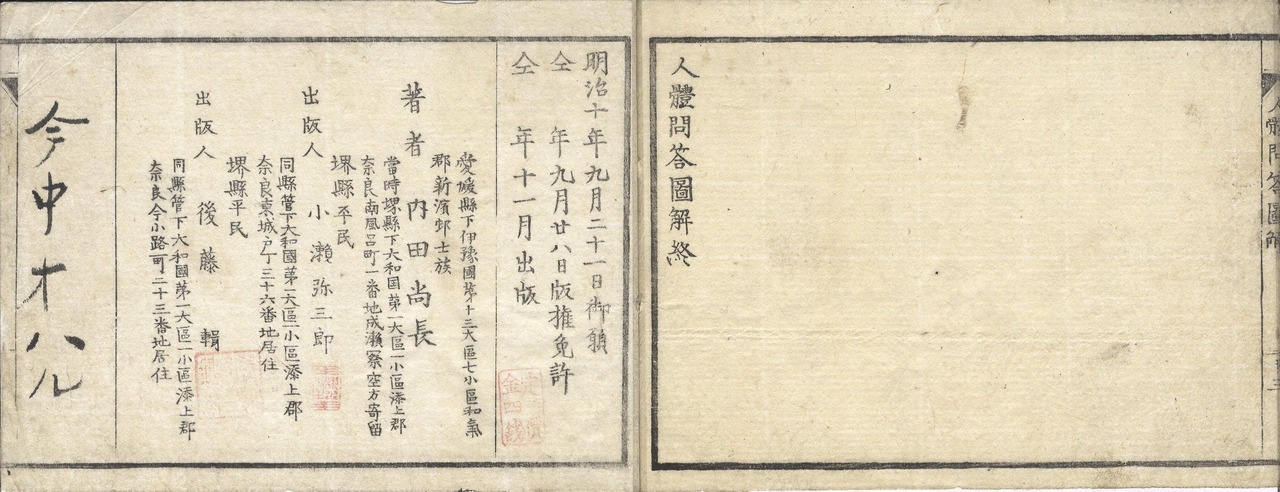 人體問答圖解
人體問答圖解終
明治十年九月二十一日御願
仝 年九月廿八日版權免許
仝 年十一月出版
愛媛縣下伊豫國第十三大區七小區和氣
郡新濱邨士族
著者 内田尚長
當時堺縣下大和国第一大區一小區添上郡
奈良南風呂町一番地成瀬察空方寄留
堺縣平民
出版人 小瀬弥三郎
同縣管下大和國第一大區一小區添上郡
奈良東城戸丁三十六番地居住
堺縣平民
出版人 後藤 輯
同縣管下大和國第一大區一小區添上郡
奈良今小路町二十三番地居住
今中オハル